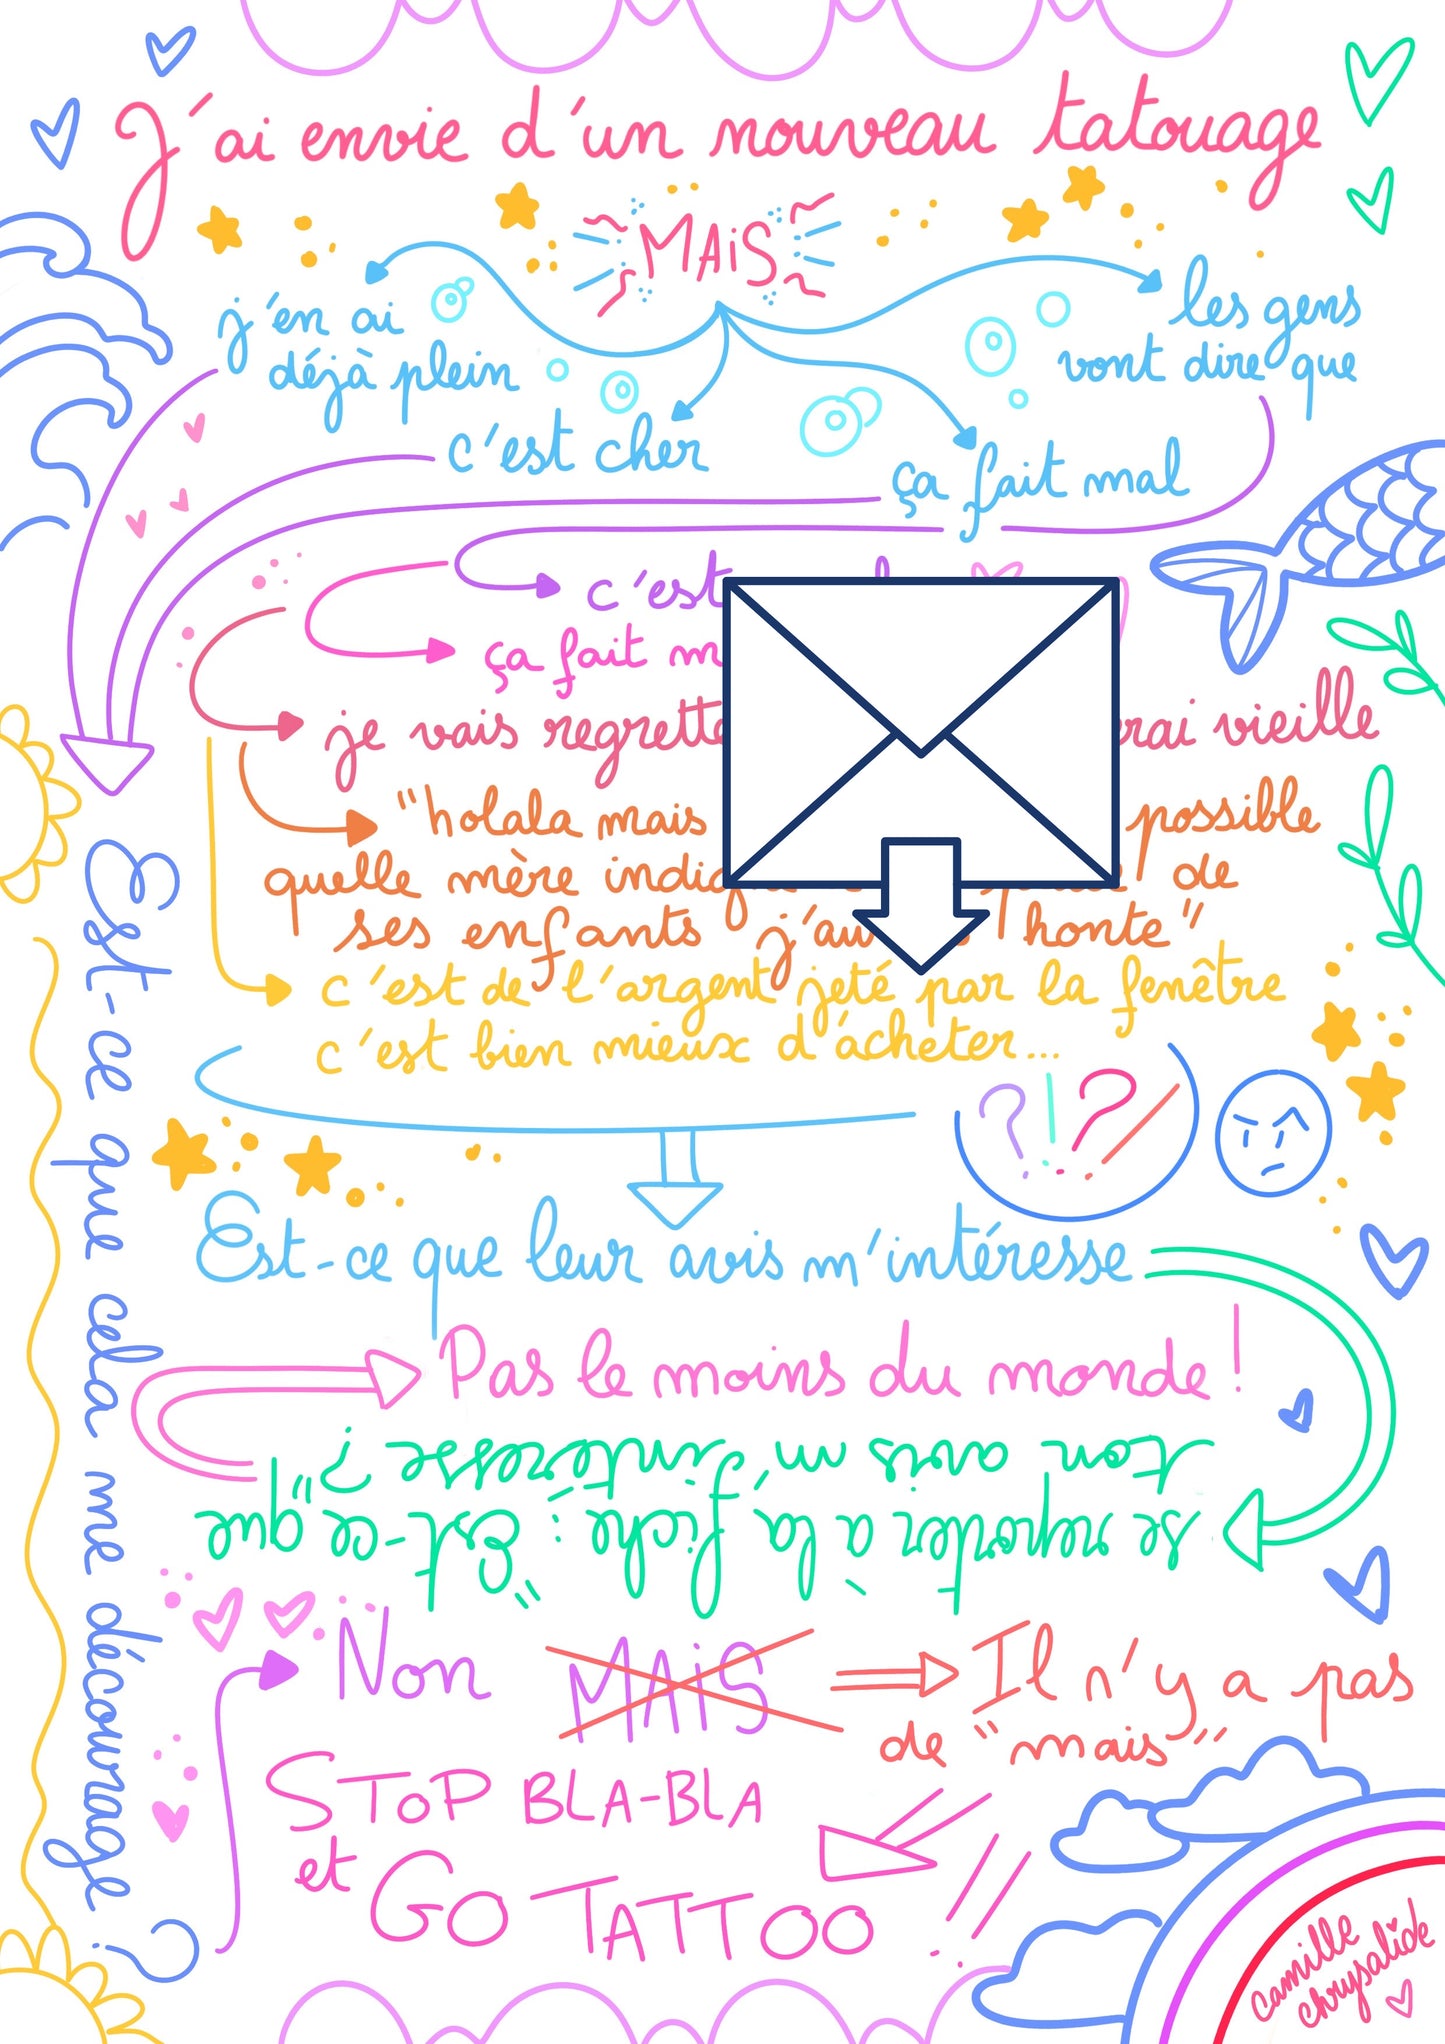 J'ai envie d'un nouveau tatouage
MAiS
j'en ai
déjà plein
c'est cher
ça fait mal
les gens
vont dire que
c'est
ça fait
je vais vieille
"holala mais possible
quelle mère de
ses enfants honte"
c'est de l'argent jeté par la fenêtre
c'est bien mieux d'acheter...
?!?!
Est-ce que leur avis m'intéresse
se reporter à la fiche : "Est-ce que
ton avis m'intéresse ?"
Pas le moins du monde !
Est-ce que cela me décourage ?
Non MAiS
Il n'y a pas
de "mais"
STOP BLA-BLA
et GO TATTOO !!
camille
chrysalide